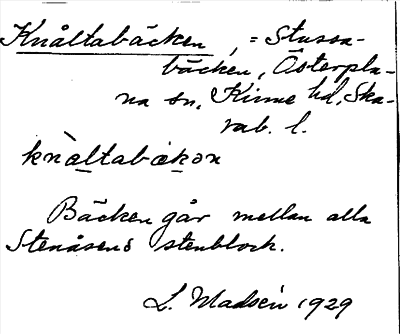 Knåltabäcken, = Stussa-
bäcken, Österpla-
na sn, Kinne hd, Ska-
rab. l.
knàltabäkən
Bäcken går mellan alla
Stenåsens stenblock.
L. Madsén 1929